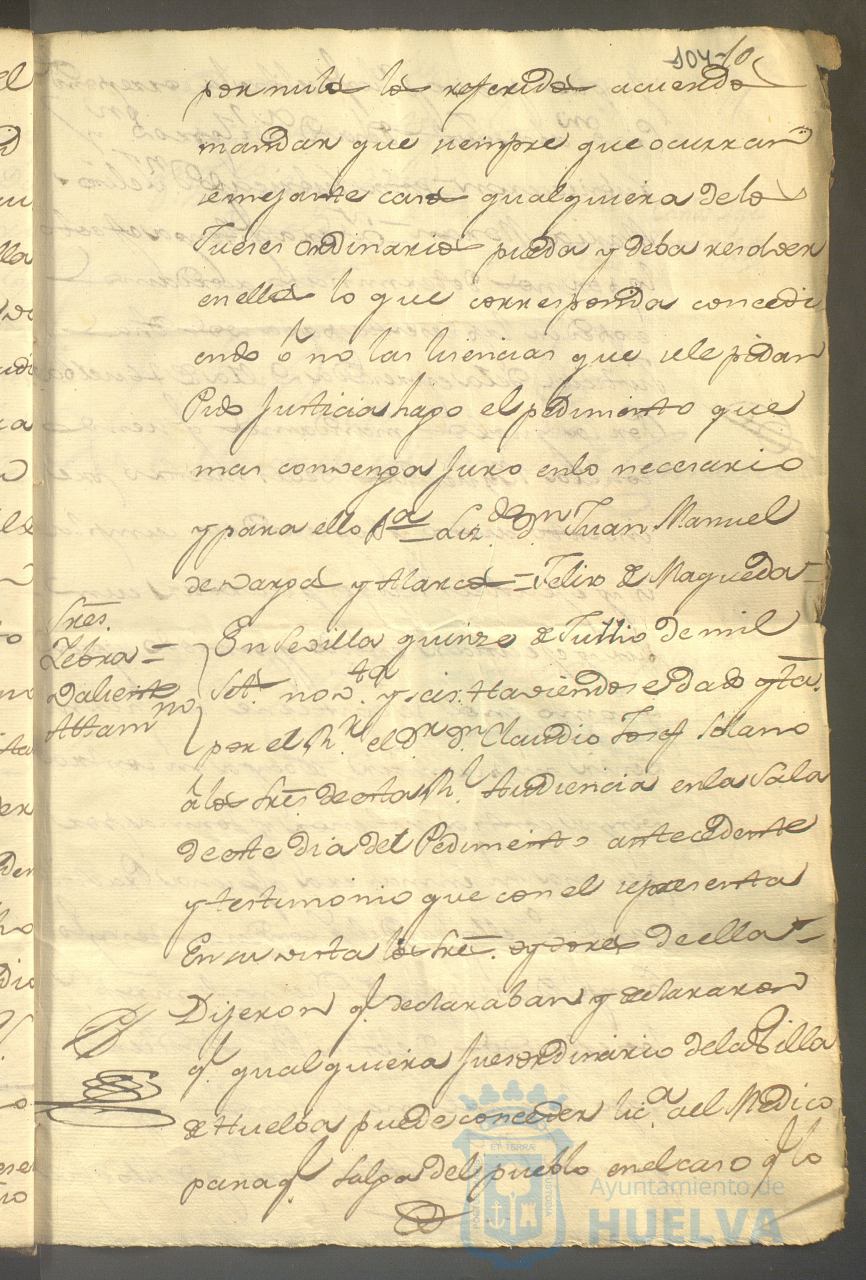 104-10
permita los referidos acuerdos
mandar que siempre que ocurran
semejantes casos qualquiera de los
Jueses ordinarios pueda y deba resolver
en ellos lo que corresponda concedi
endo ó no las lisencias que sele pidan
Pido Justicia hago el pedimento que
mas convenga Juro enlo necesario
y para ello &a = Liz.do Dn Juan Manuel
de y Alarcos = Felix de Maqueda =
Sres.
Zebra =
Daliente
Altam.no
En Sevilla quinze de Jullio de mil
Set.s nov.ta y seis Haviendose dado qta.
por el Rr. el Dr. Dn. Claudio Josef Solano
á los Sres de esta Rl. Audiencia en la Sala
de este dia del Pedimento antecedente
y testimonio que con el se presenta
En su vista los Sres. oydores de ella =
Dijeron q.e declaraban y declararon
q.e qualquiera Jues ordinario dela Villa
de Huelva puede conceder lic.a al Medico
para q.e salga del pueblo en el caso q.e lo
ET TERRAE
CUSTODIA
Ayuntamiento de
HUELVA